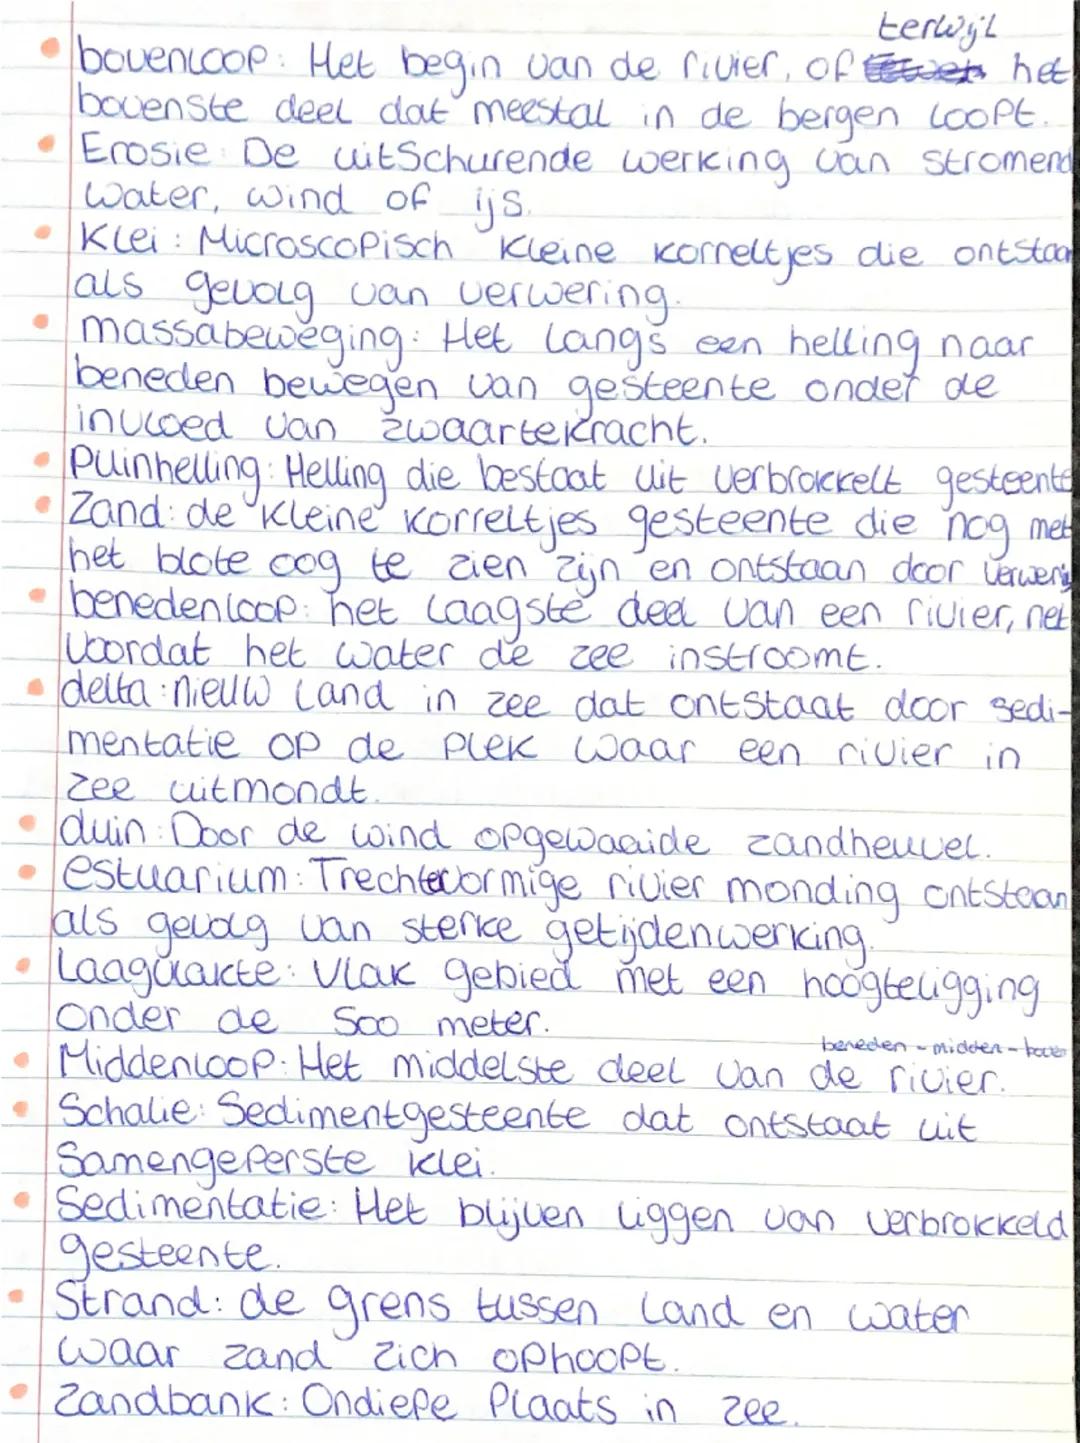 terwijl
bovenloop: Het begin van de rivier, of het
bovenste deel dat meestal in de bergen loopt.
Erosie: De uitschurende werking van stromend
water, wind of ijs.
Klei: Microscopisch kleine korreltjes die ontstaan
als gevolg van verwering.
massabeweging: Het langs een helling naar
beneden bewegen van gesteente onder de
invloed van zwaartekracht.
Puinhelling: Helling die bestaat uit verbrokkelt gesteente
Zand: de kleine korreltjes gesteente die nog met
het blote oog te zien zijn en ontstaan door verwering
benedenloop: het laagste deel van een rivier, net
voordat het water de zee instroomt.
delta: nieuw land in zee dat ontstaat door sedi-
mentatie op de plek waar een rivier in
zee uitmondt.
duin: Door de wind opgewaaide zandheuvel.
estuarium: Trechtervormige rivier monding ontstaan
als gevolg van sterke getijdenwerking.
Laagvlakte: Vlak gebied met een hoogteligging
onder de 500 meter.
beneden - midden - boven
Middenloop: Het middelste deel van de rivier.
Schalie: Sedimentgesteente dat ontstaat uit
Samengeperste klei.
Sedimentatie: Het blijven liggen van verbrokkeld
gesteente.
Strand: de grens tussen land en water
waar zand zich ophoopt.
Zandbank: Ondiepe Plaats in zee.